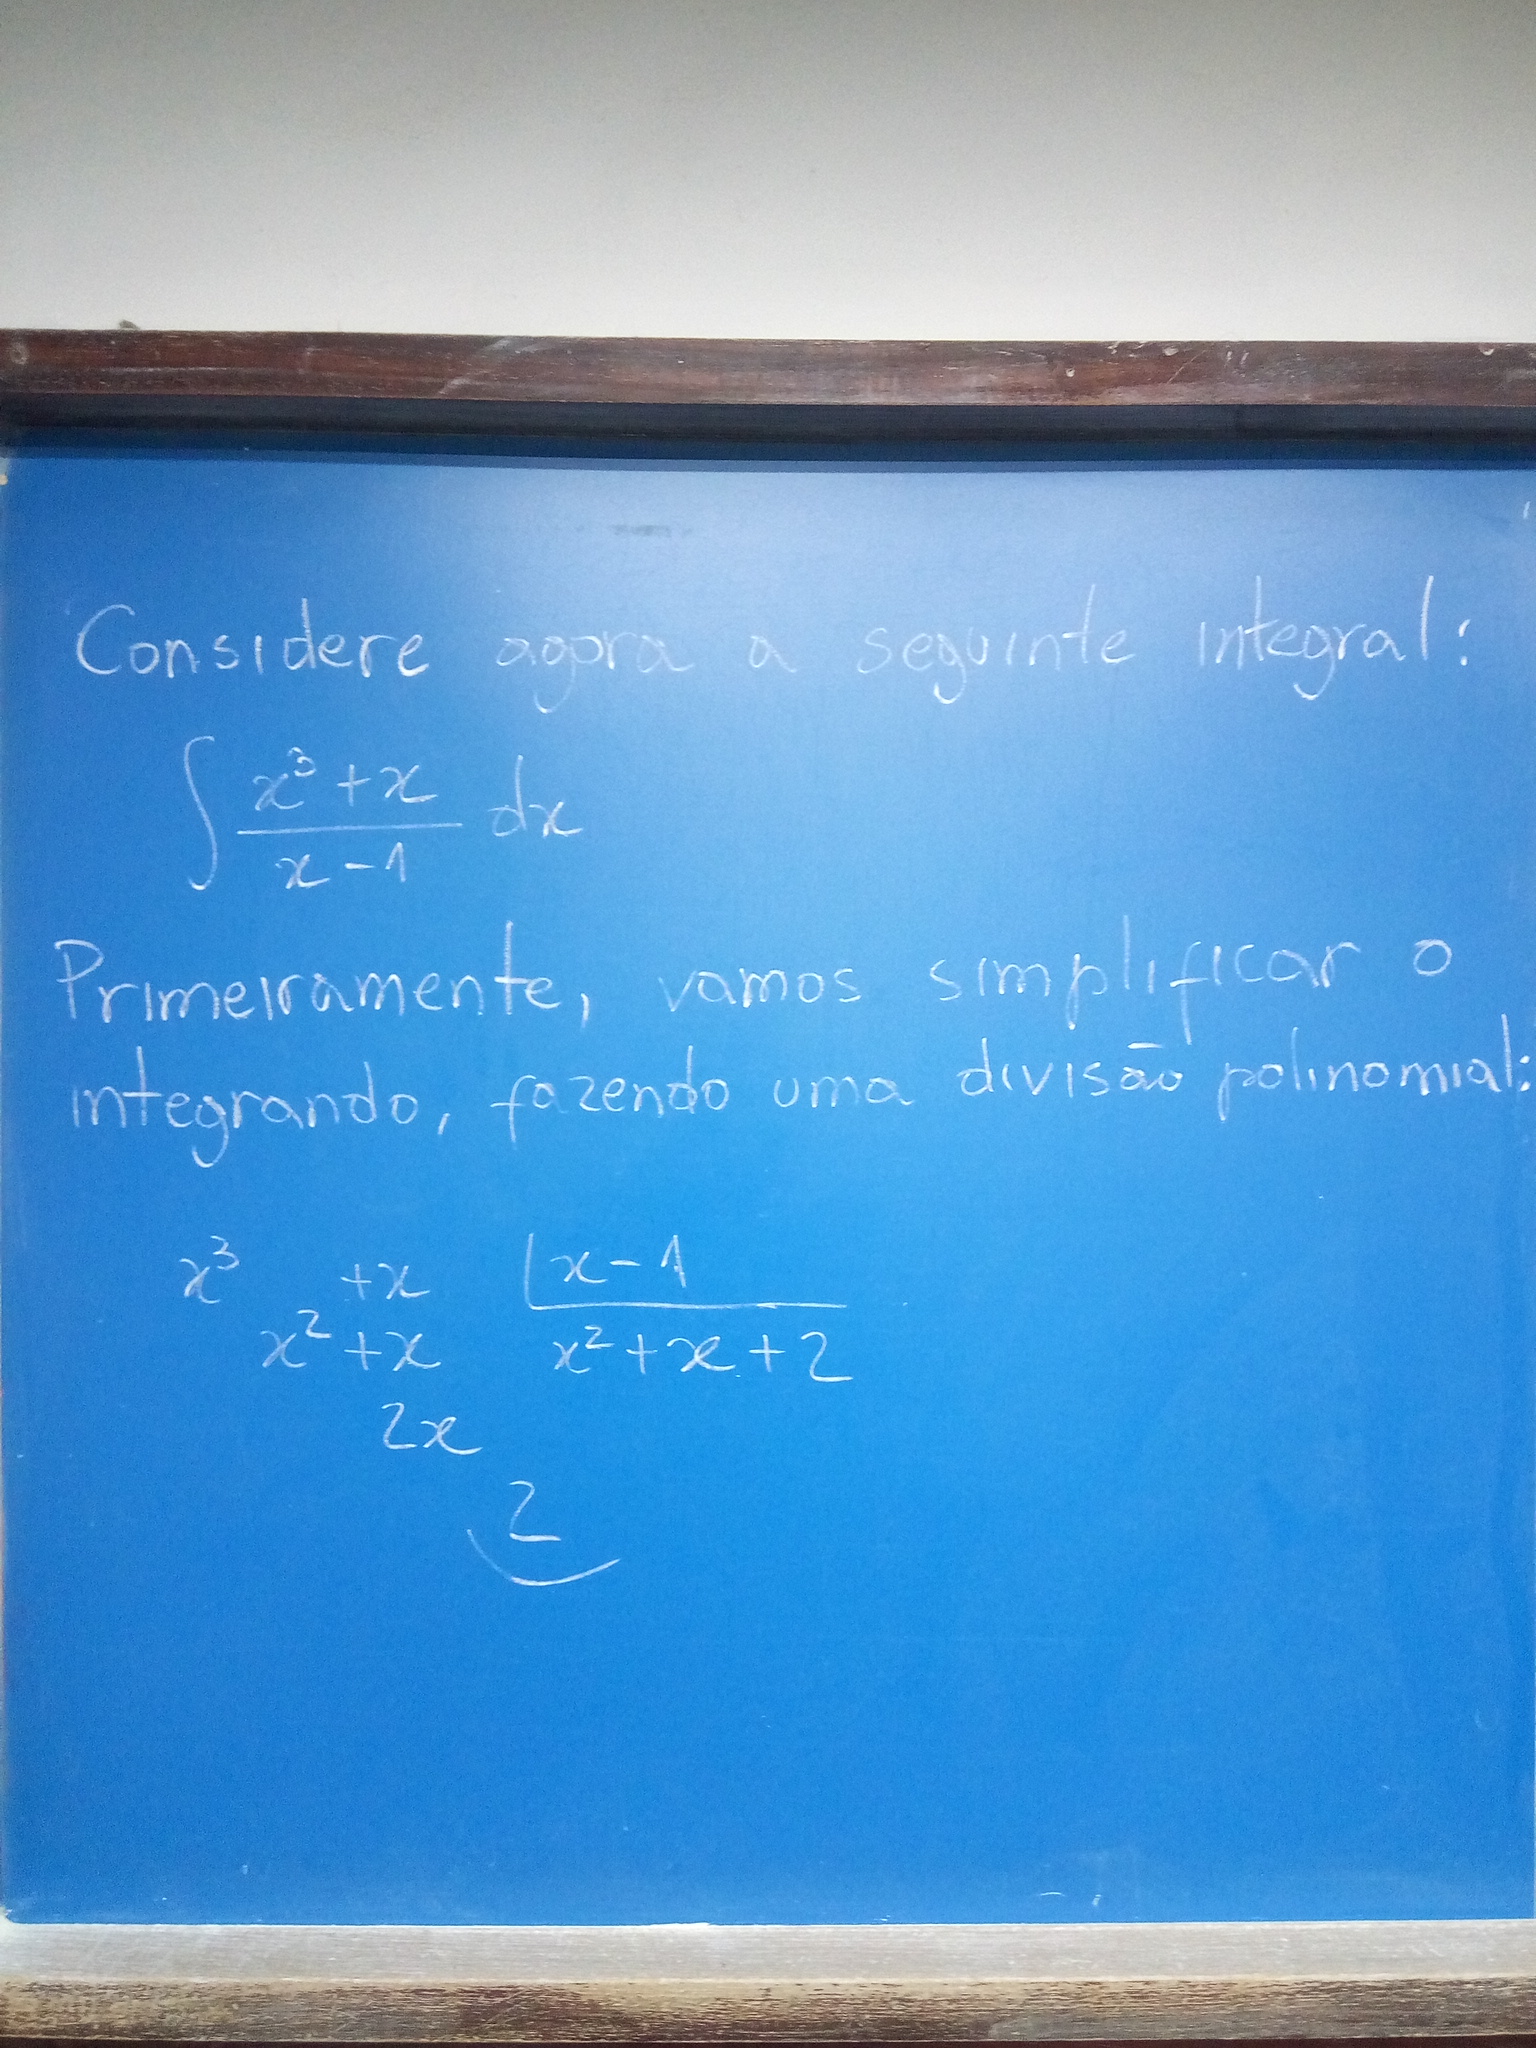 Considere agora a seguinte integral:
∫ (x³ + x)/(x - 1) dx
Primeiramente, vamos simplificar o
integrando, fazendo uma divisão polinomial:
x³ + x | x - 1
x² + x x² + x + 2
2x
2